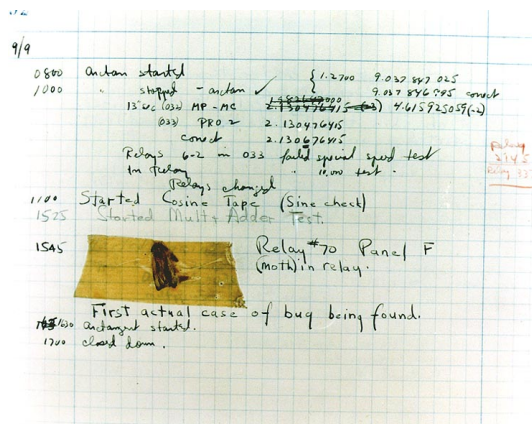 9/9
0800 Antan started { 1.2700 9.037 847 025
1000 " stopped - antan ✓ 9.037 846 995 correct
13"uc (032) MP - MC 2.130476415 (-3) 4.615925059(-2)
(033) PRO 2 2.130476415
correct 2.130676415
Relays 6-2 in 033 failed special speed test
In Relay " 10,000 test .
Relays changed
Relay
2145
Relay 337
1100 Started Cosine Tape (Sine check)
1525 Started Mult + Adder Test.
1545 Relay #70 Panel F
(moth) in relay.
First actual case of bug being found.
1630 antangent started.
1700 closed down.